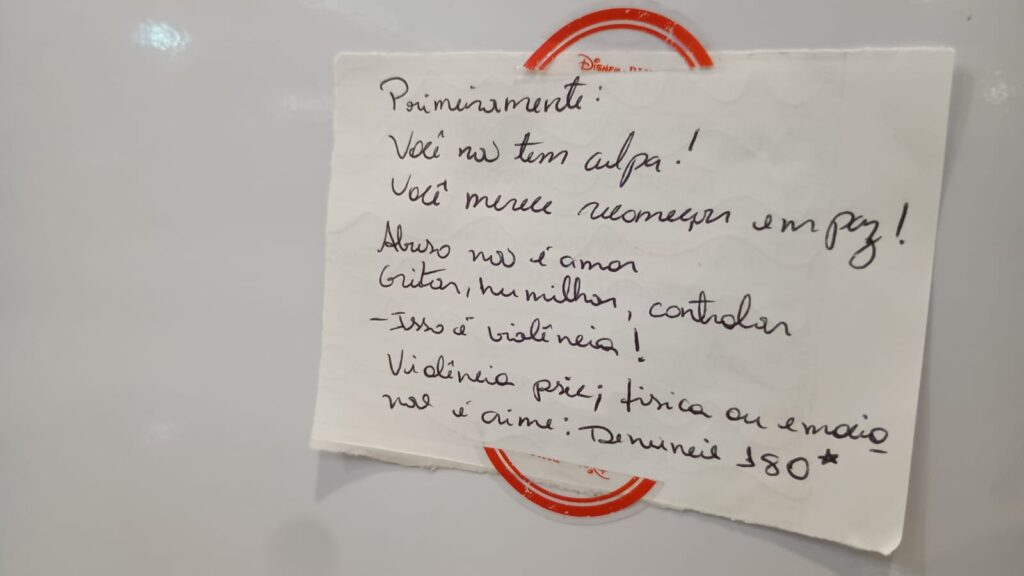 DISNEY
Primeiramente:
Você não tem culpa!
Você merece recomeçar em paz!
Abuso não é amor
Gritar, humilhar, controlar
-Isso é violência!
Violência psic; física ou emocio
nal é crime: Denuncie 180*